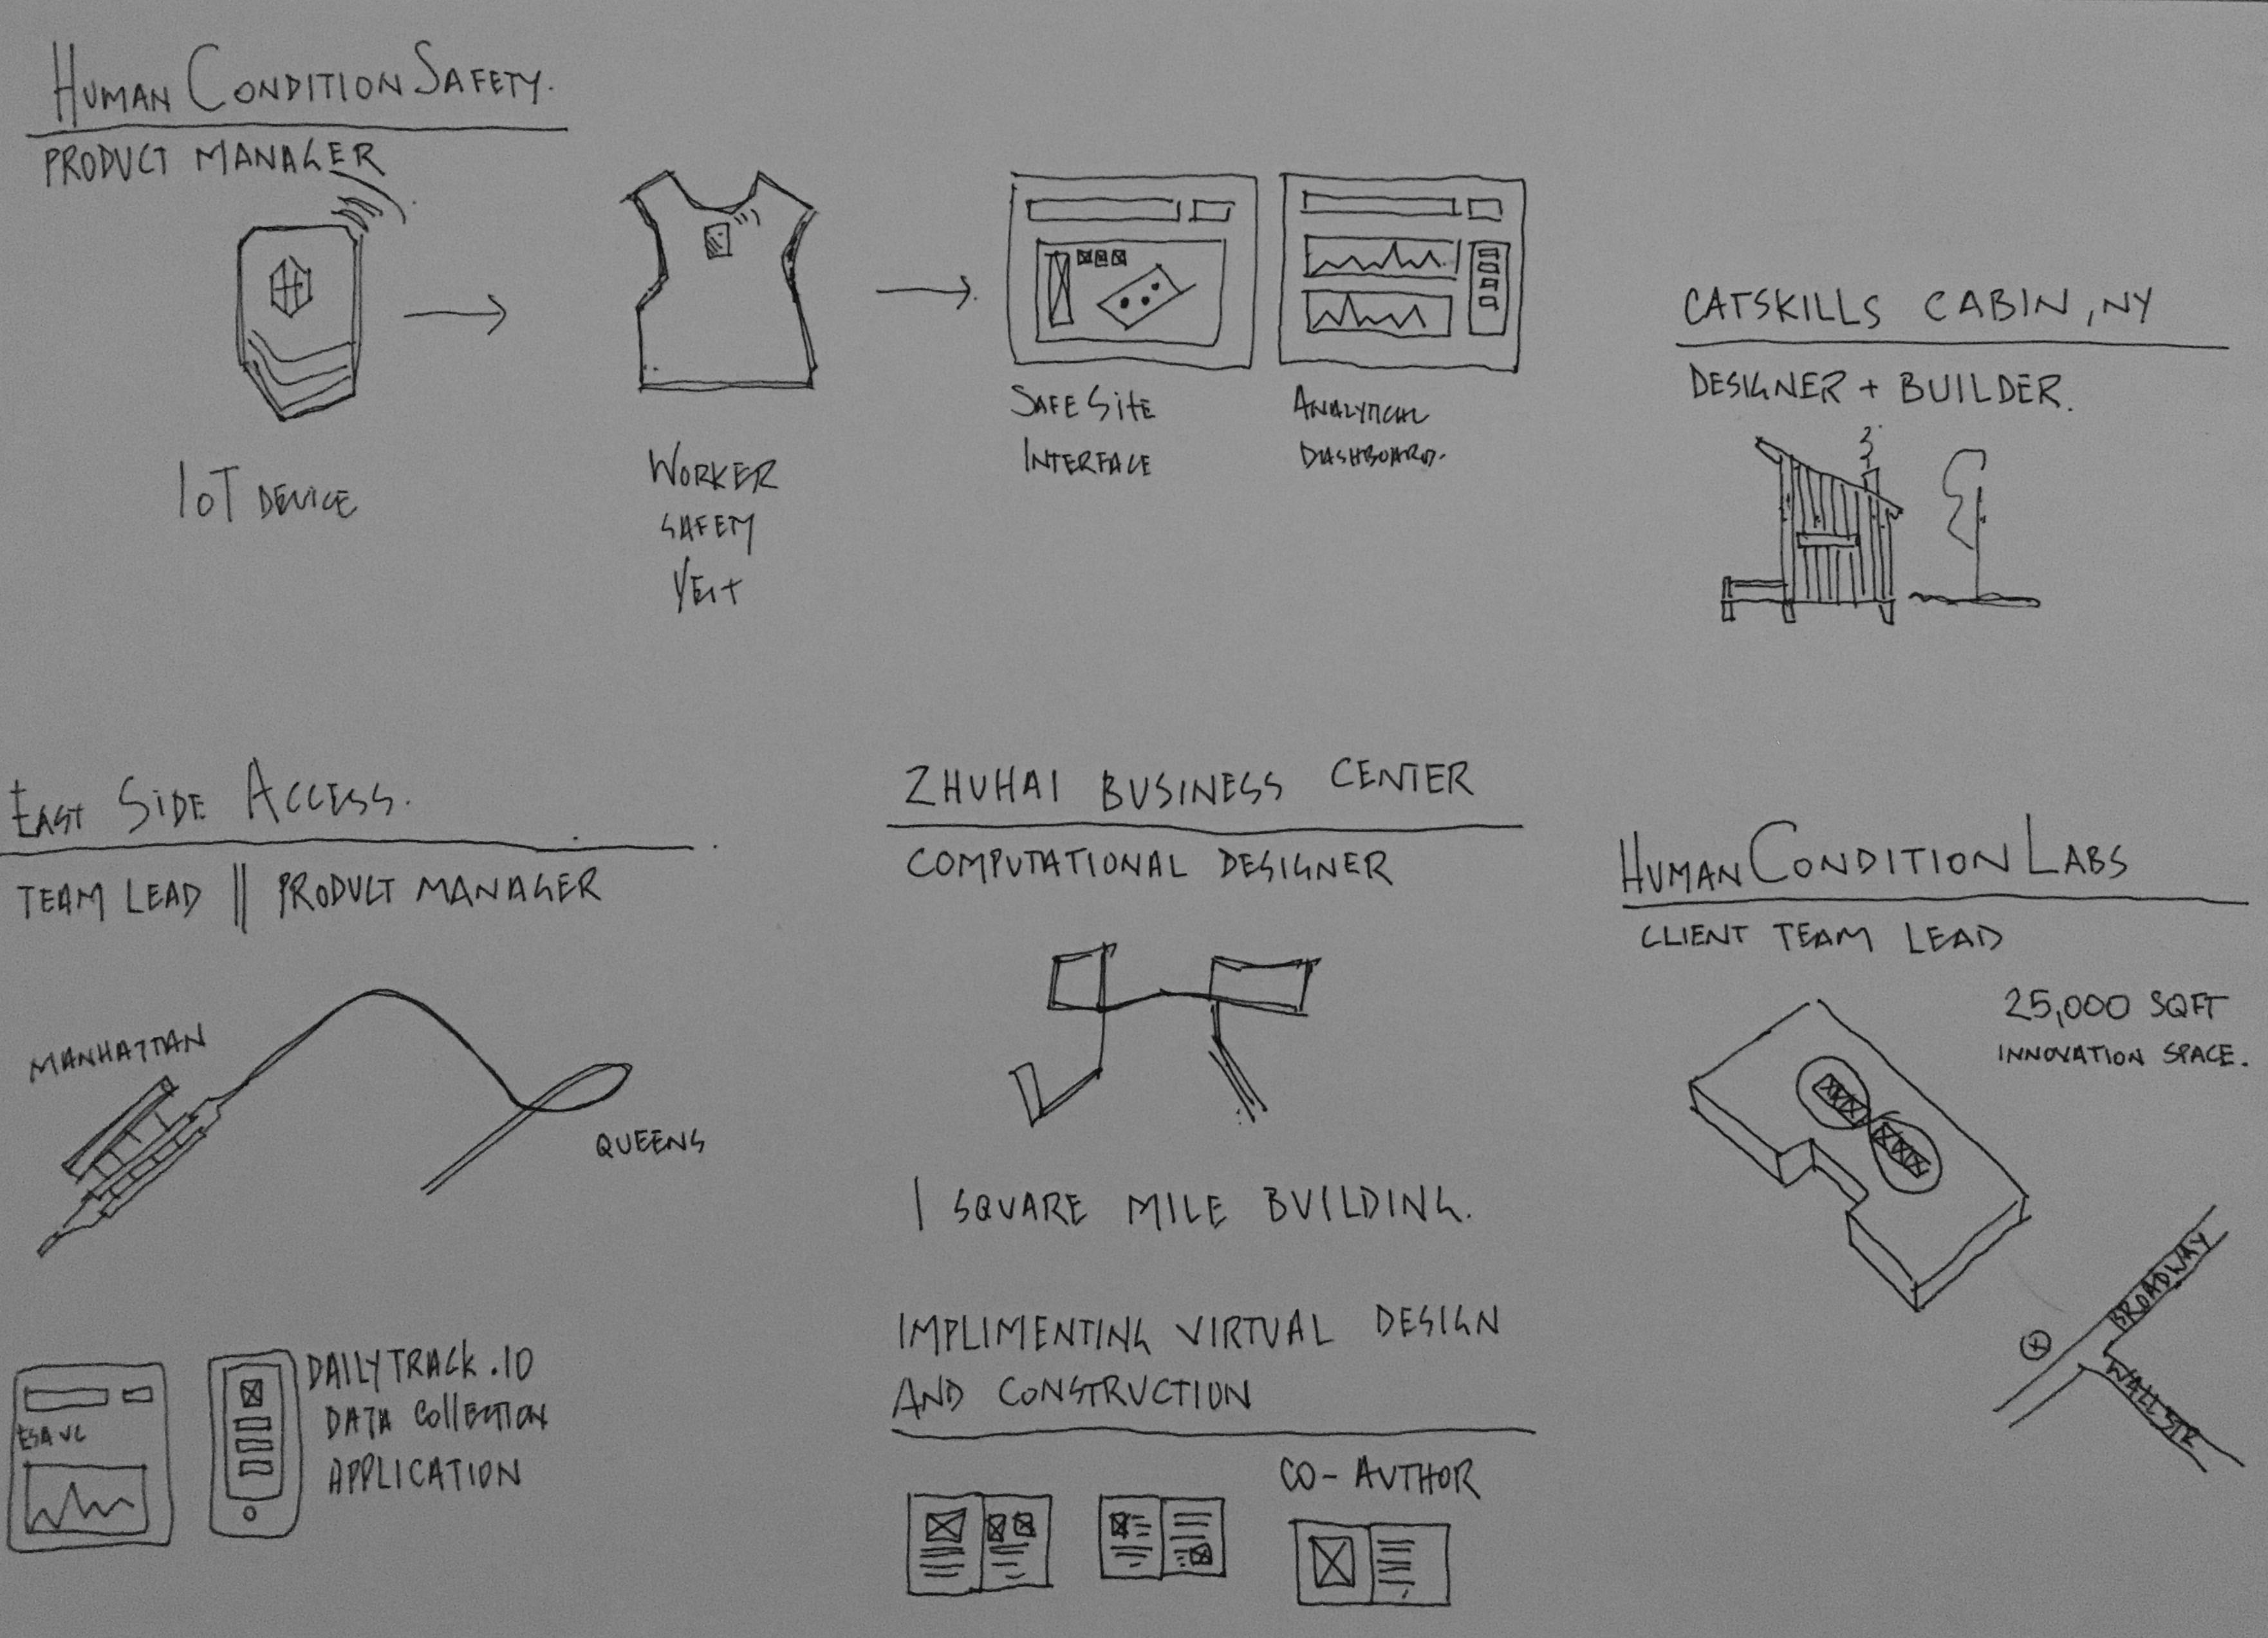 HUMAN CONDITION SAFETY.
PRODUCT MANAGER
IOT DEVICE
WORKER
SAFETY
VEST
SAFE SITE
INTERFACE
ANALYTICAL
DASHBOARD.
CATSKILLS CABIN, NY
DESIGNER + BUILDER.
EAST SIDE ACCESS.
TEAM LEAD || PRODUCT MANAGER
MANHATTAN
QUEENS
ESA VC
DAILYTRACK.IO
DATA COLLECTION
APPLICATION
ZHUHAI BUSINESS CENTER
COMPUTATIONAL DESIGNER
1 SQUARE MILE BUILDING.
IMPLIMENTING VIRTUAL DESIGN
AND CONSTRUCTION
CO-AUTHOR
HUMAN CONDITION LABS
CLIENT TEAM LEAD
25,000 SQFT
INNOVATION SPACE.
BROADWAY
WALL STR